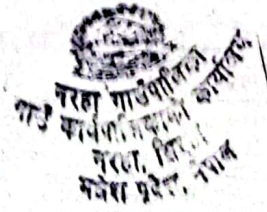 नरहा गाउँपालिका
गाउँ कार्यपालिकाको कार्यालय
नरहा, सिरहा
मधेश प्रदेश, नेपाल